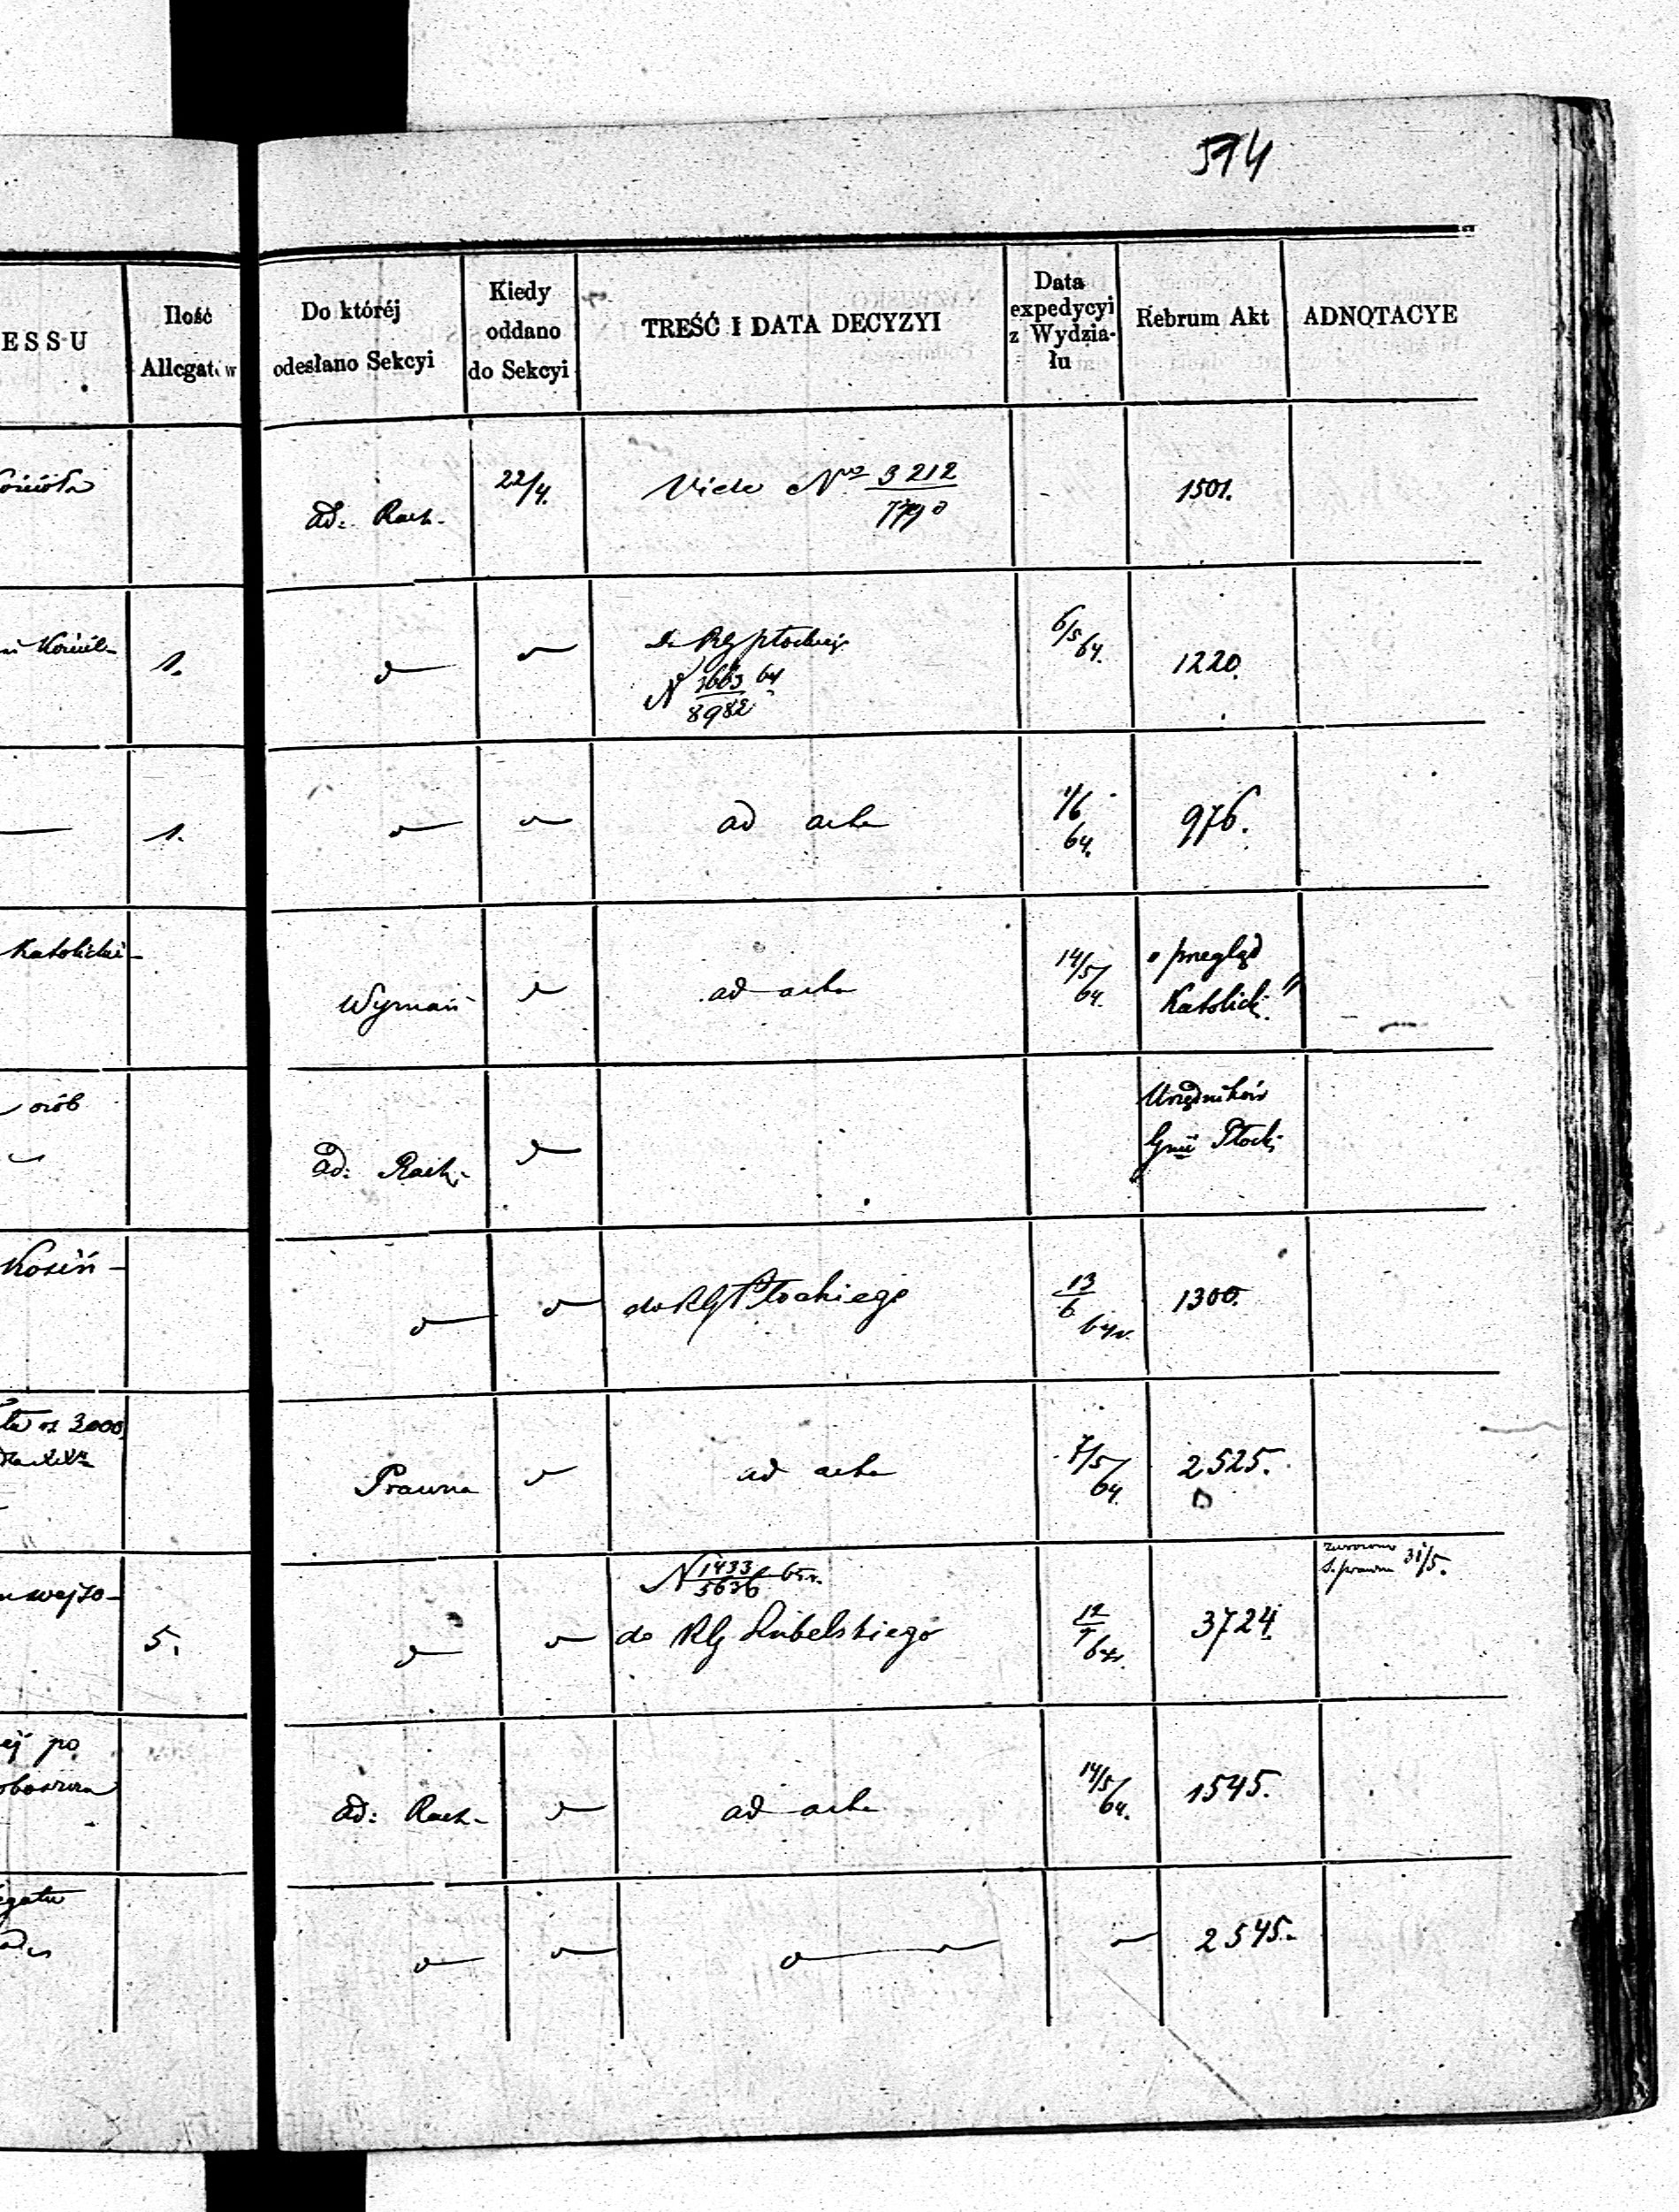 514
ESSU
Ilość
Allegatów
Do któréj
odesłano Sekcyi
Kiedy
oddano
do Sekcyi
TREŚĆ I DATA DECYZYI
Data
expedycyi
z Wydzia-
łu
Rebrum Akt
ADNOTACYE
ad: Rach.
22/4.
Vide No 3212
1501.
1.
N 3663 64
8982
6/5 64.
1220.
1.
ad acta
1/6
64.
976.
Katolicki-
Wyznań
ad acta
14/5
64.
"przegląd
Katolicki"
osób
ad: Rach.
Urzędników
Gnii Płocki
Kosiń-
do RG Płockiego
13
6
64 r.
1300.
3000
Prawna
ad acta
7/5
64.
2525.
5.
N 1433 65 r.
5636
do RG Lubelskiego
12
64 r.
3724.
31/5.
ej po
ad: Rach.
ad acta
14/5
64.
1545.
2545.